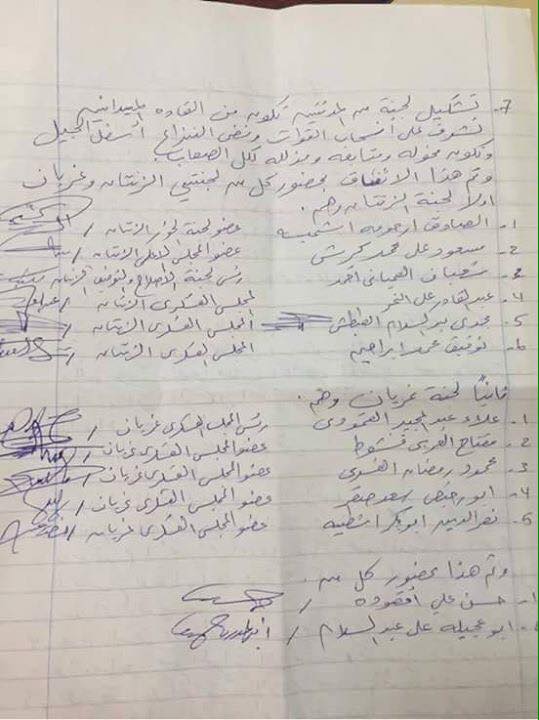 7- تشكيل لجنة من المدينتين تكون من القاده الميدانيين
تشرف على انسحاب القوات وفض النزاع أسفل الجبل
وتكون مخوله ومتابعه ومذلله لكل الصعاب
وتم هذا الاتفاق بحضور كل من لجنتي الزنتان وغريان
اولاً لجنة الزنتان وهم.
1- الصادق ارحومه عضو لجنة الزنتان /
2- مسعود على محمد عضو المجلس الاعلى الزنتان
3- شعبان احمد رئيس لجنة الاصلاح الزنتان
4- عبدالقادر على المجلس العسكرى الزنتان /
5- مجدى عبدالسلام المجلس العسكرى الزنتان /
6- توفيق محمد ابراهيم المجلس العسكرى الزنتان /
ثانياً لجنة غريان وهم.
1- علاء عبدالمجيد العمودى رئيس المجلس العسكرى غريان /
2- مفتاح العربى عضو المجلس العسكرى غريان /
3- محمود رمضان عضو المجلس العسكرى غريان /
4- ابوبكر عضو المجلس العسكرى غريان /
5- نصرالدين ابوبكر عضو المجلس العسكرى غريان /
وتم هذا بحضور كل من.
1- حسن على /
2- ابوعجيله على عبدالسلام /